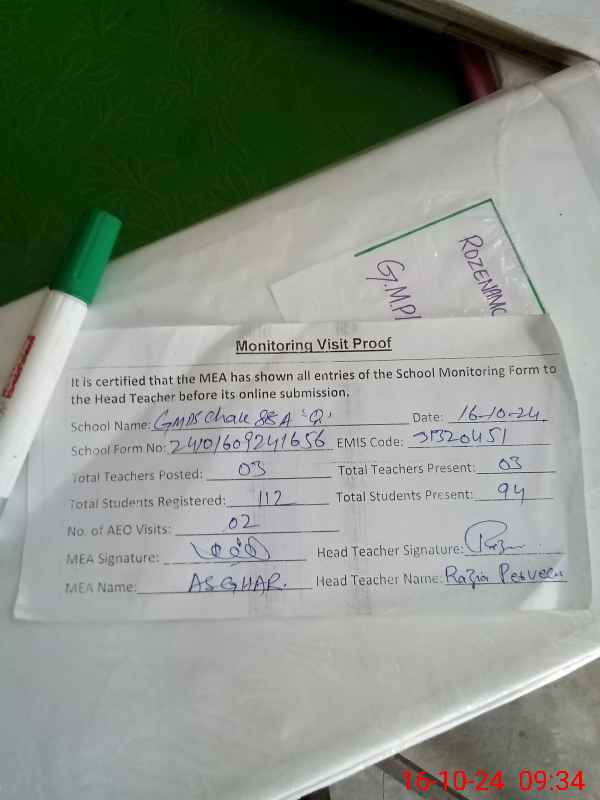 ROZENAMC
G.MPI
Monitoring Visit Proof
It is certified that the MEA has shown all entries of the School Monitoring Form to
the Head Teacher before its online submission.
School Name: GMPS Chak 88 A 'Q' Date: 16-10-24
School Form No: 24101609241656 EMIS Code: 31320451
Total Teachers Posted: 03 Total Teachers Present: 03
Total Students Registered: 112 Total Students Present: 94
No. of AEO Visits: 02
MEA Signature: Head Teacher Signature:
MEA Name: ASGHAR. Head Teacher Name: Razia Perveen
16-10-24 09:34